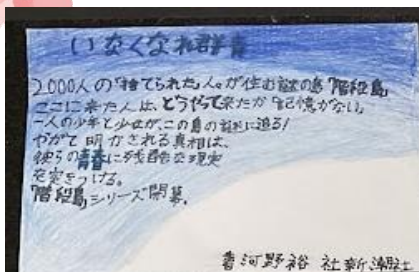 いなくなれ群青
2000人の「捨てられた」人。が住む謎の島「階段島」
ここに来た人は、どうやって来たか「記憶がない。
一人の少年と少女が、この島の謎に迫る!
やがて明かされる真相は、
彼らの青春に残酷な現実
を突きつける。
「階段島」シリーズ開幕。
著河野裕 社新潮社